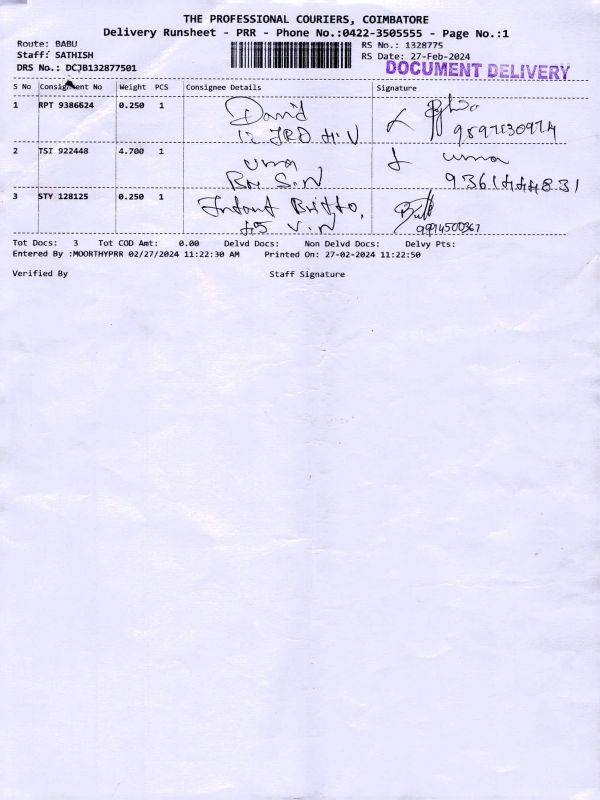 THE PROFESSIONAL COURIERS, COIMBATORE
Delivery Runsheet - PRR - Phone No.:0422-3505555 - Page No.:1
Route: BABU
Staff: SATHISH
DRS No.: DCJB132877501
RS No.: 1328775
RS Date: 27-Feb-2024
DOCUMENT DELIVERY
S No Consignment No Weight PCS Consignee Details Signature
1 RPT 9386624 0.250 1 David
2 TSI 922448 4.700 1 uma uma
S.N
3 STY 128125 0.250 1 Infant Britto,
45 V.N
Tot Docs: 3 Tot COD Amt: 0.00 Delvd Docs: Non Delvd Docs: Delvy Pts:
Entered By :MOORTHYPRR 02/27/2024 11:22:30 AM Printed On: 27-02-2024 11:22:50
Verified By Staff Signature